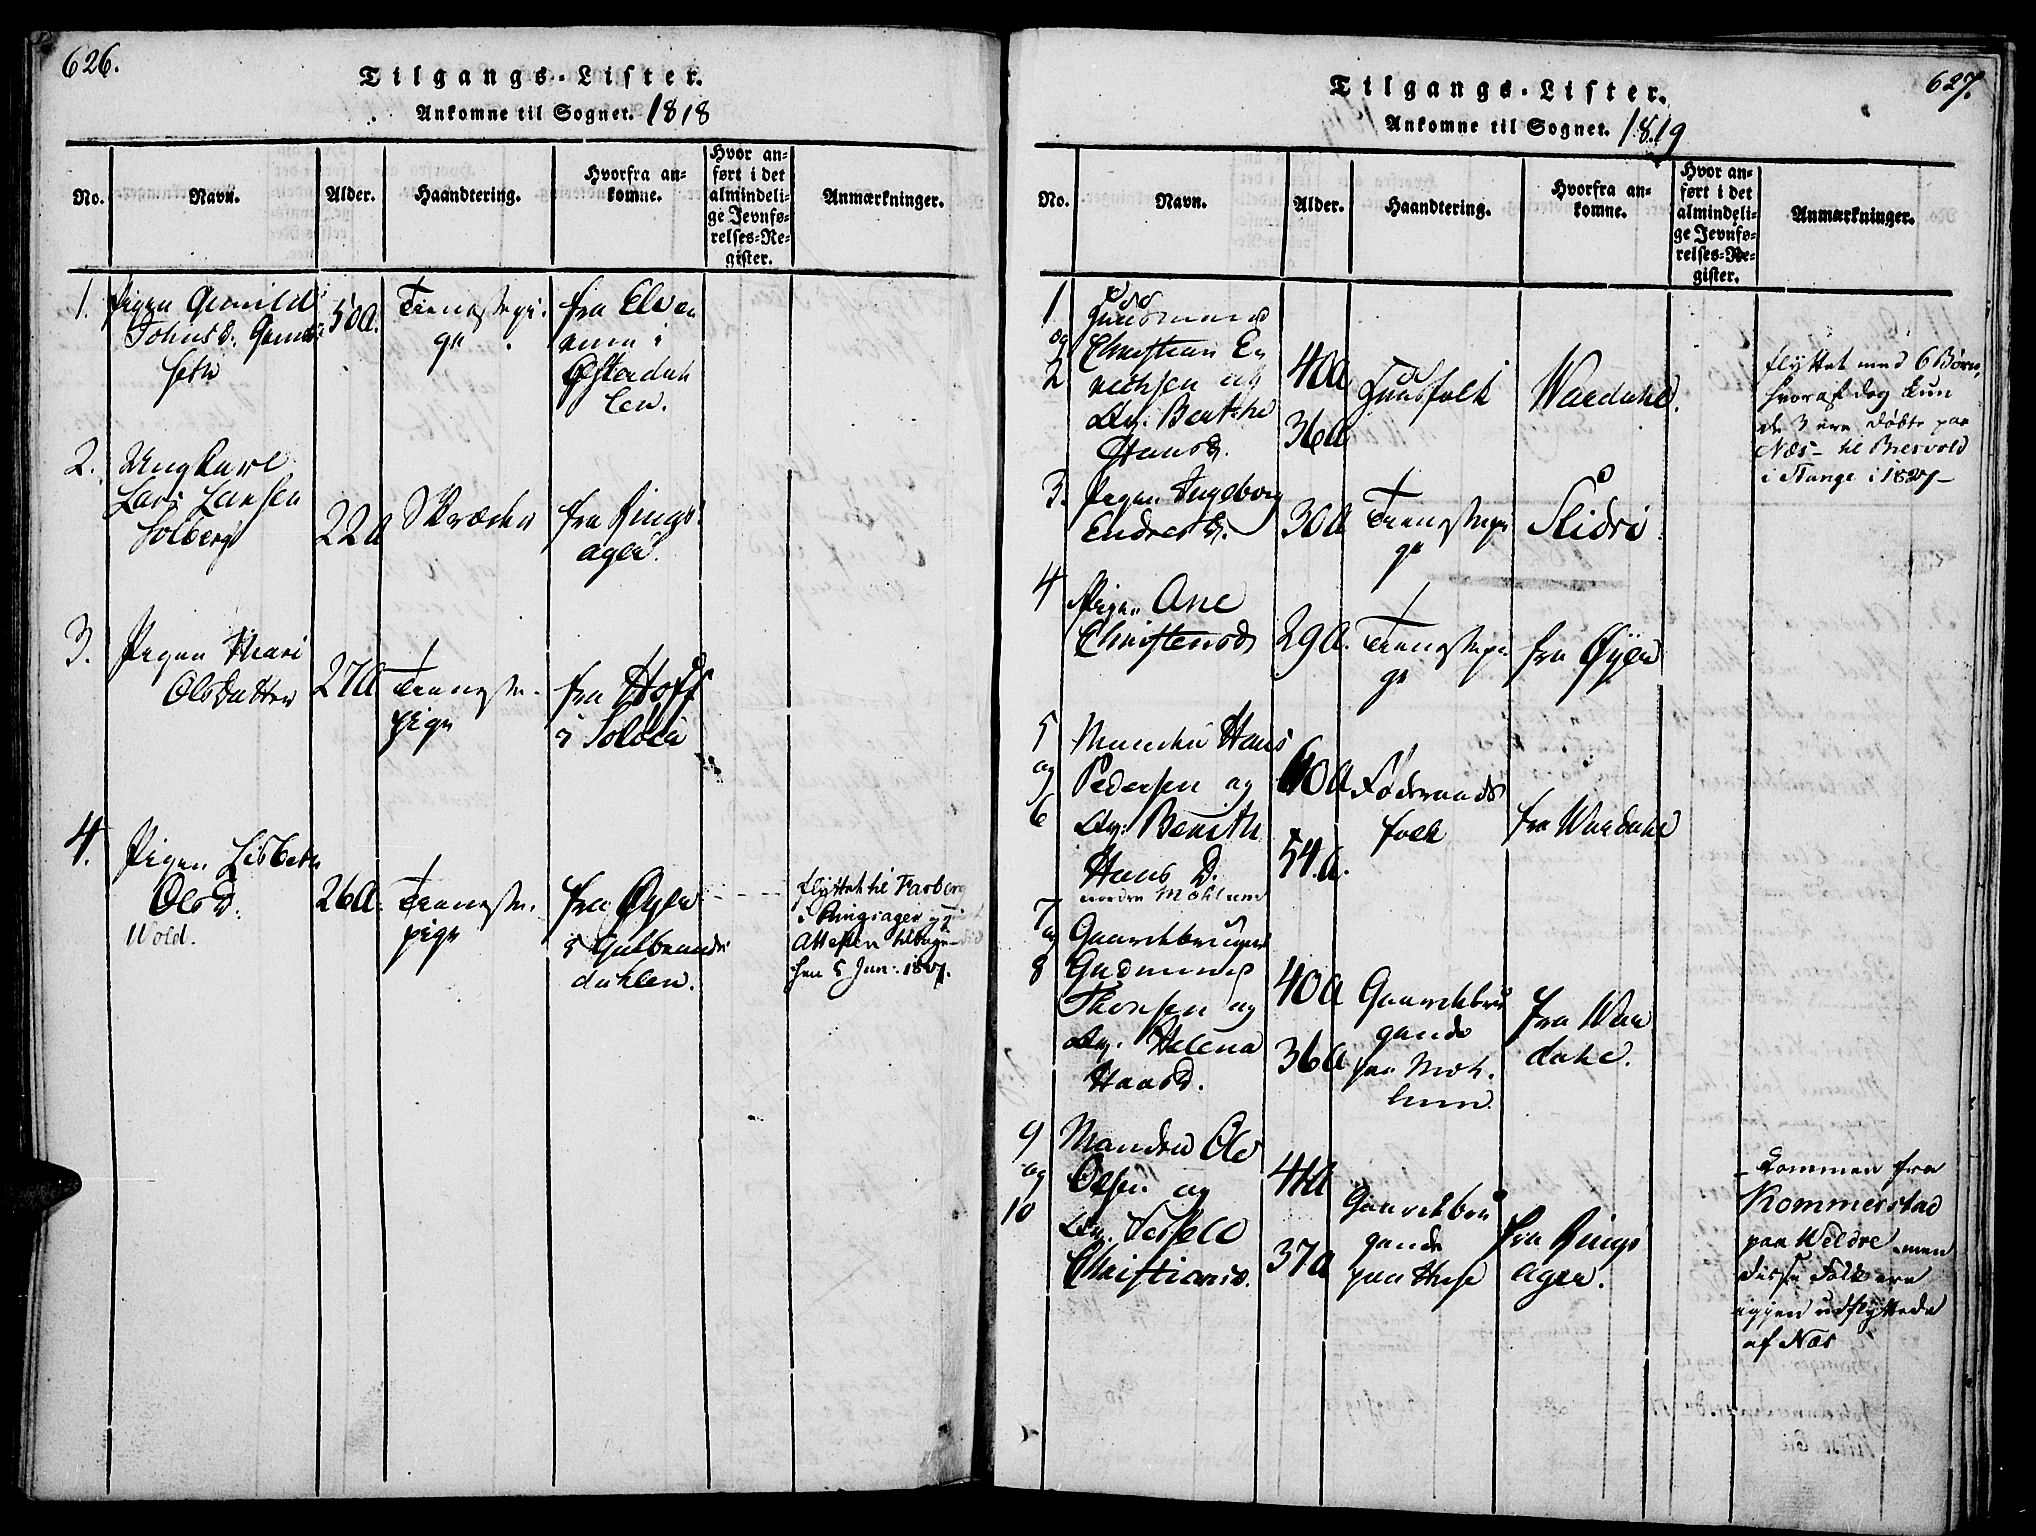 626.
Tilgangs-Lister.
Ankomne til Sognet. 1818
No.
Navn.
Alder.
Haandtering.
Hvorfra an-
komne.
Hvor an-
ført i det
almindeli-
ge Jevnfø-
relses-Re-
gister.
Anmærkninger.
1. Pigen Gunild
Johnsd.
50 A.
Tienestepi-
ge.
fra Elve
rum i
Østerdah
len.
2. Ungkarl
Lars Larsen
Solberg
22 A
Skræder
fra Rings
ager.
3. Pigen Mari
Olsdatter
27 A
Tieneste-
pige
fra Hoff
i Soløer
4. Pigen Lisbeth
Ols D.
Wold.
26 A.
Tieneste-
pige
fra Øyer
i Gulbrands
dahlen.
flyttet til Farberg
i Ringsager
Attesten tilbage-
5 Jan: 1827.
627.
Tilgangs-Lister.
Ankomne til Sognet. 1819
No.
Navn.
Alder.
Haandtering.
Hvorfra an-
komne.
Hvor an-
ført i det
almindeli-
ge Jevnfø-
relses-Re-
gister.
Anmærkninger.
1
og
2
Huusmand
Christian En
richsen og
Berthe
Hansd.
40 A
36 A
Huusfolk
Wardahl.
flyttet med 6 Børn,
hvoraf dog kun
de 3 ere døbte paa
Næs - til
i Stange i 1827 -
3. Pigen Ingeborg
Endresd.
30 A
Tienestepi
ge
Slidri
4 Pigen Ane
Christensd
29 A.
Tienestepi
ge
fra Øyer
5
og
6
Manden Hans
Pedersen og
Hans D.
60 A
54. A.
Føderaads
folk
fra Wardahl
nordre Mæhlum
7
og
8
Gaardbruger
Gudmund
Thorsen og
Helena
Haasd.
40 A
36 A
Gaardbru
gende
paa Mæh-
lum.
fra War
dahl.
9
og
10
Manden Ole
Olsen og
Christians.
41 A
37 A
Gaardbru
gende
paa
fra Rings
ager.
- kommen fra
Kommerstad
paa Weldre - men
disse Folk ere
igjen udflyttede
af Næs